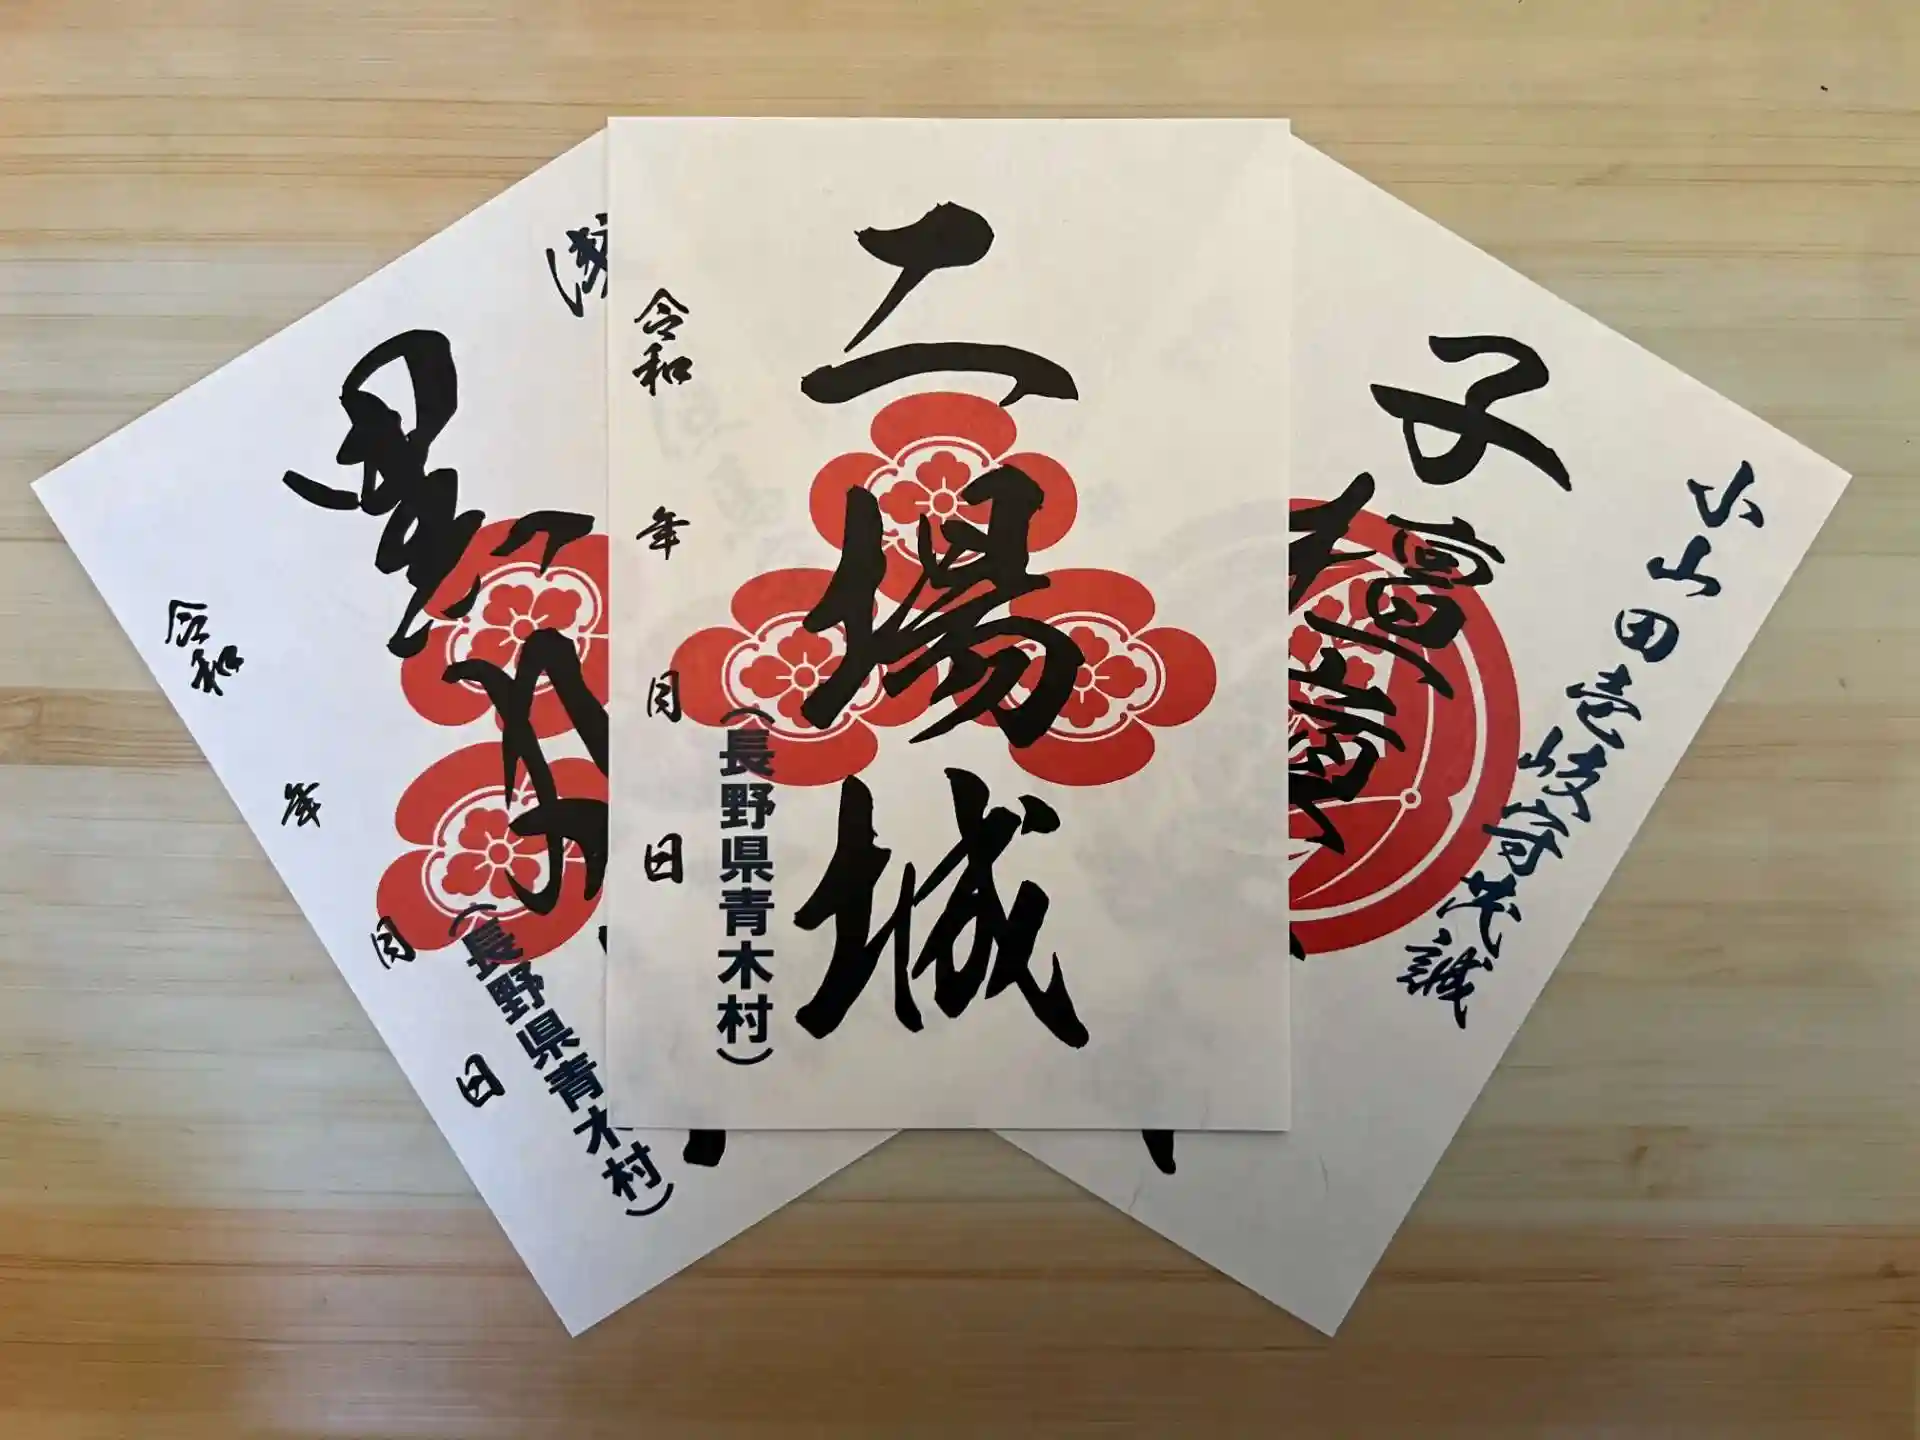 黒丸
令和
年
月
日
(長野県青木村)
二場城
令和
年
月
日
(長野県青木村)
小山田壱岐守茂誠
子檀嶺